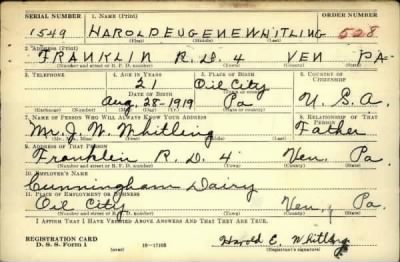 SERIAL NUMBER 1. NAME (Print) ORDER NUMBER
1549 HAROLD EUGENE WHITLING 528
(First) (Middle) (Last)
2. ADDRESS (Print)
FRANKLIN R.D. 4 VEN PA.
(Number and street or R. F. D. number) (Town) (County) (State)
3. TELEPHONE 4. AGE IN YEARS 5. PLACE OF BIRTH 6. COUNTRY OF CITIZENSHIP
21 Oil City
DATE OF BIRTH
Aug. 28-1919 Pa U.S.A.
(Exchange) (Number) (Mo.) (Day) (Yr.) (State or country)
7. NAME OF PERSON WHO WILL ALWAYS KNOW YOUR ADDRESS 8. RELATIONSHIP OF THAT PERSON
Mr. J. W. Whitling Father
(Mr., Mrs., Miss) (First) (Middle) (Last)
9. ADDRESS OF THAT PERSON
Franklin R.D. 4 Ven. Pa.
(Number and street or R. F. D. number) (Town) (County) (State)
10. EMPLOYER'S NAME
Cunningham Dairy
11. PLACE OF EMPLOYMENT OR BUSINESS
Oil City Ven. Pa.
(Number and street or R. F. D. number) (Town) (County) (State)
I AFFIRM THAT I HAVE VERIFIED ABOVE ANSWERS AND THAT THEY ARE TRUE.
REGISTRATION CARD
D. S. S. Form 1 (over) 16-17105 Harold E. Whitling
(Registrant's signature)